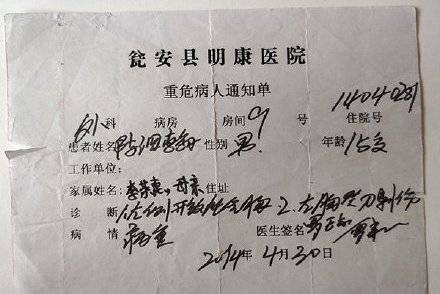 瓮安县明康医院
重危病人通知单
外科 病房 房间 9 号 14040281 住院号
患者姓名 陈泗 性别 男. 年龄 15岁
工作单位:
家属姓名: 李荣惠 母亲 住址
诊断 1、左侧开放性 2、左胸 刀刺伤
病情 病重 医生签名
2014年4月30日